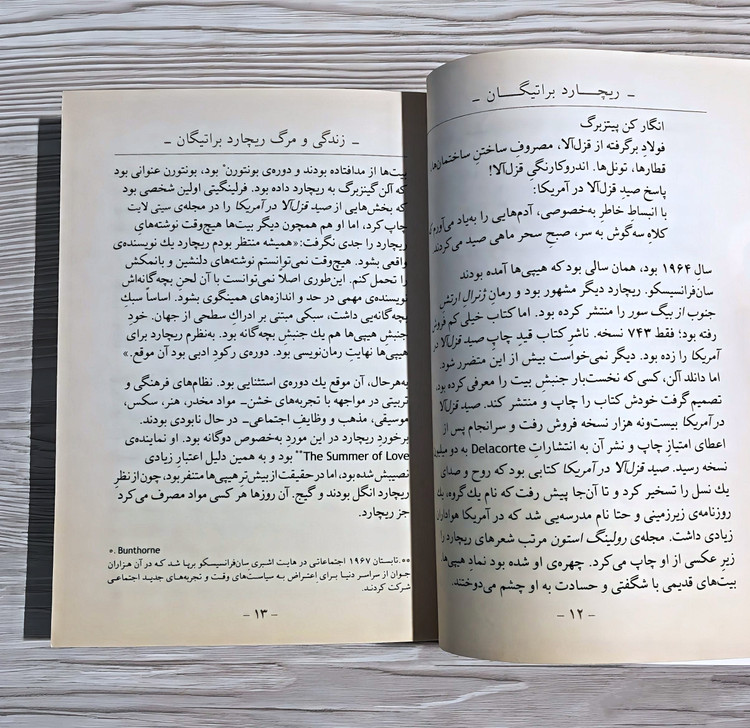 ـ ریچـــارد براتیگـــان ـ
انگار کن پیتزبرگ
فولادِ برگرفته از قزل‌آلا، مصروفِ ساختنِ ساختمان‌ها،
قطارها، تونل‌ها. اندروکارنگی قزل‌آلا!
پاسخ صیدِ قزل‌آلا در آمریکا:
با انبساطِ خاطرِ به‌خصوصی، آدم‌هایی را به‌یاد می‌آورم که
کلاهِ سه‌گوش به سر، صبحِ سحر ماهی صید می‌کردند.
سالِ ۱۹۶۴ بود، همان سالی بود که هیپی‌ها آمده بودند
سان‌فرانسیسکو. ریچارد دیگر مشهور بود و رمانِ ژنرالِ ارتشِ
جنوب از بیگ سور را منتشر کرده بود. اما کتاب خیلی کم فروش
رفته بود؛ فقط ۷۴۳ نسخه. ناشرِ کتاب قیدِ چاپِ صید قزل‌آلا در
آمریکا را زده بود. دیگر نمی‌خواست بیش از این متضرر شود.
اما دانلد آلن، کسی که نخست‌بار جنبشِ بیت را معرفی کرده بود،
تصمیم گرفت خودش کتاب را چاپ و منتشر کند. صید قزل‌آلا
در آمریکا بیست‌ونه هزار نسخه فروش رفت و سرانجام پس از
اعطای امتیازِ چاپ و نشر آن به انتشاراتِ Delacorte به دو میلیون
نسخه رسید. صید قزل‌آلا در آمریکا کتابی بود که روح و صدای
یك نسل را تسخیر کرد و تا آن‌جا پیش رفت که نام یك گروه، یك
روزنامه‌ی زیرزمینی و حتا نام مدرسه‌یی شد که در آمریکا هواداران
زیادی داشت. مجله‌ی رولینگ استون مرتب شعرهای ریچارد را
زیر عکسی از او چاپ می‌کرد. چهره‌ی او شده بود نمادِ هیپی‌ها.
بیت‌های قدیمی با شگفتی و حسادت به او چشم می‌دوختند.
ـ ۱۲ ـ
ـ زندگی و مرگ ریچارد براتیگان ـ
بیت‌ها از مدافتاده بودند و دوره‌ی بونتورن* بود، بونتورن عنوانی بود
که آلن گینزبرگ به ریچارد داده بود. فرلینگیتی اولین شخصی بود
که بخش‌هایی از صید قزل‌آلا در آمریکا را در مجله‌ی سیتی لایت
چاپ کرد، اما او هم همچون دیگر بیت‌ها هیچ‌وقت نوشته‌های
ریچارد را جدی نگرفت: «همیشه منتظر بودم ریچارد یك نویسنده‌ی
واقعی بشود. هیچ‌وقت نمی‌توانستم نوشته‌های دلنشین و بانمکش
را تحمل کنم. این‌طوری اصلاً نمی‌توانست با آن لحنِ بچه‌گانه‌اش
نویسنده‌ی مهمی در حد و اندازه‌های همینگوی بشود. اساساً سبكِ
بچه‌گانه‌یی داشت، سبکی مبتنی بر ادراكِ سطحی از جهان. خودِ
جنبش هیپی‌ها هم یك جنبش بچه‌گانه بود. به‌نظرم ریچارد برای
هیپی‌ها نهایتِ رمان‌نویسی بود. دوره‌ی رکودِ ادبی بود آن موقع.»
به‌هرحال، آن موقع یك دوره‌ی استثنایی بود. نظام‌های فرهنگی و
تربیتی در مواجهه با تجربه‌های خشن– مواد مخدر، هنر، سکس،
موسیقی، مذهب و وظایف اجتماعی– در حال نابودی بودند.
برخوردِ ریچارد در این مورد به‌خصوص دوگانه بود. او نماینده‌ی
The Summer of Love** بود و به همین دلیل اعتبارِ زیادی
نصیبش شده بود، اما در حقیقت از بیش‌ترِ هیپی‌ها متنفر بود، چون از نظر
ریچارد انگل بودند و گیج. آن روزها هر کسی مواد مصرف می‌کرد
جز ریچارد.
*. Bunthorne
**. تابستان ۱۹۶۷ اجتماعاتی در هایت اشبری سان‌فرانسیسکو برپا شد که در آن هزاران
جوان از سراسر دنیا برای اعتراض به سیاست‌های وقت و تجربه‌های جدید اجتماعی
شرکت کردند.
ـ ۱۳ ـ